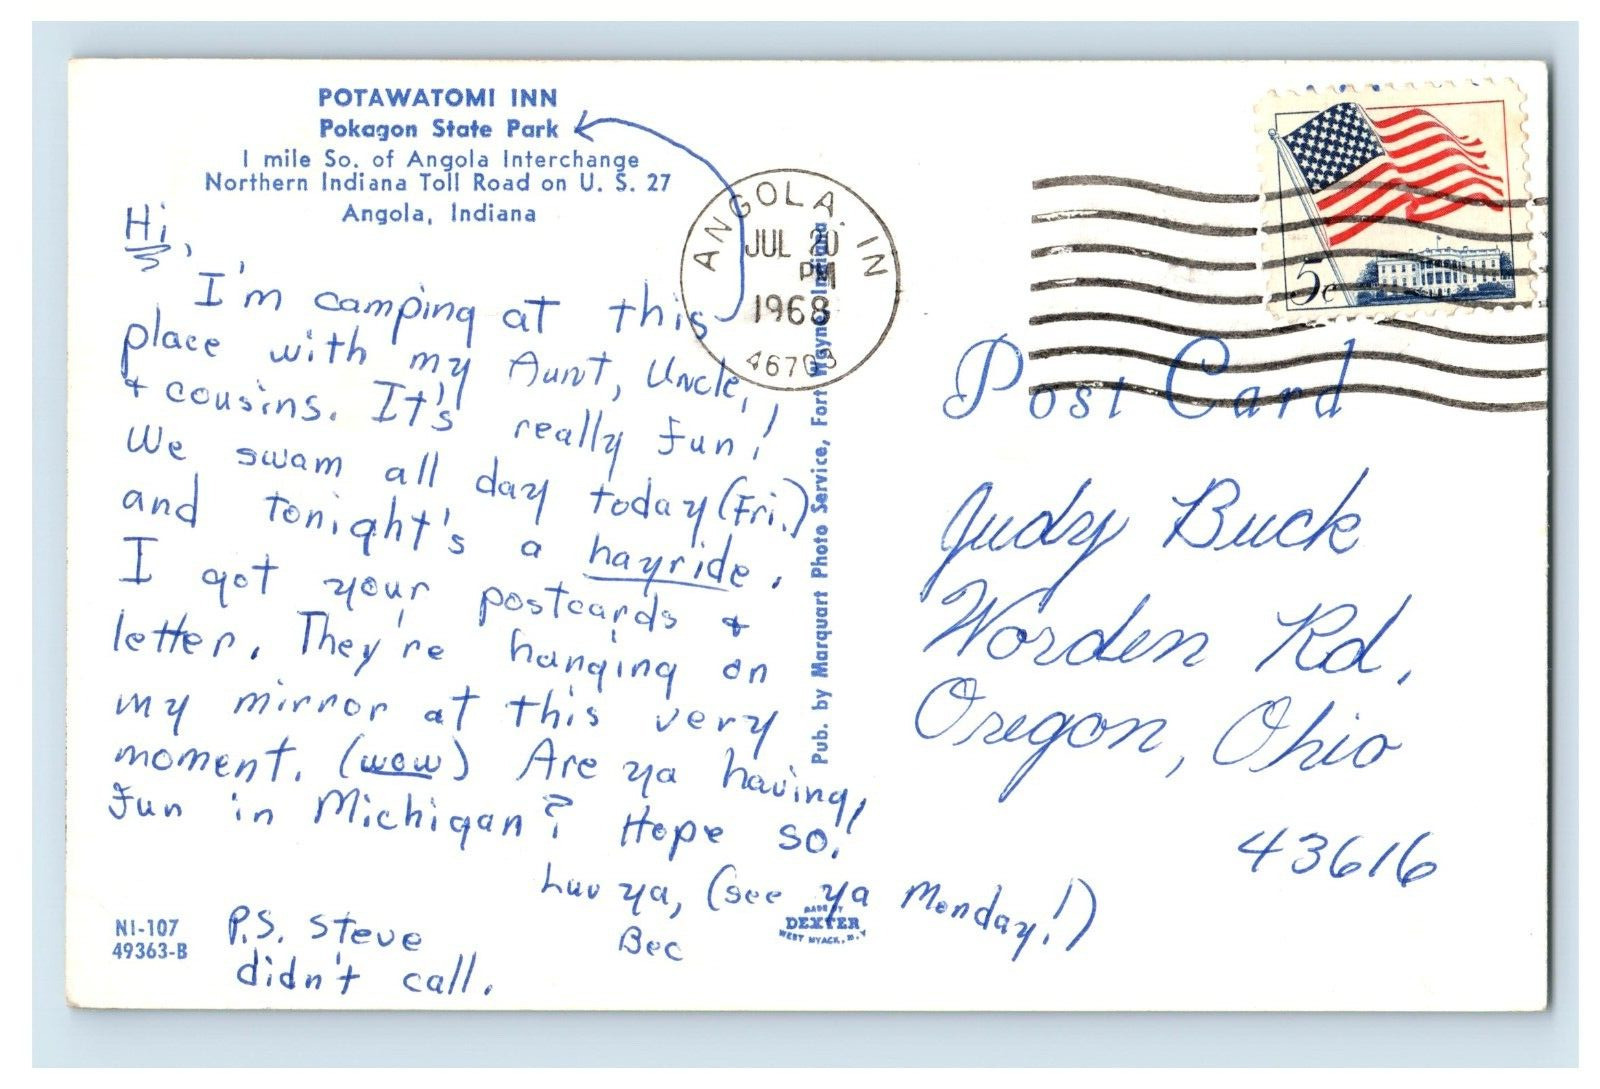 POTAWATOMI INN
Pokagon State Park
1 mile So. of Angola Interchange
Northern Indiana Toll Road on U. S. 27
Angola, Indiana
Hi,
I'm camping at this
place with my Aunt, Uncle,
+ cousins. It's really fun!
We swam all day today (Fri.)
and tonight's a hayride.
I got your postcards +
letter. They're hanging on
my mirror at this very
moment. (wow) Are ya having
fun in Michigan? Hope so!
Luv ya, (see ya Monday!)
Bec
P.S. Steve
didn't call.
NI-107
49363-B
Pub. by Marquart Photo Service, Fort Wayne, Indiana
MADE BY
DEXTER
WEST NYACK, N.Y.
ANGOLA, IN
JUL 20
PM
1968
46703
5c
Post Card
Judy Buck
Worden Rd.
Oregon, Ohio
43616